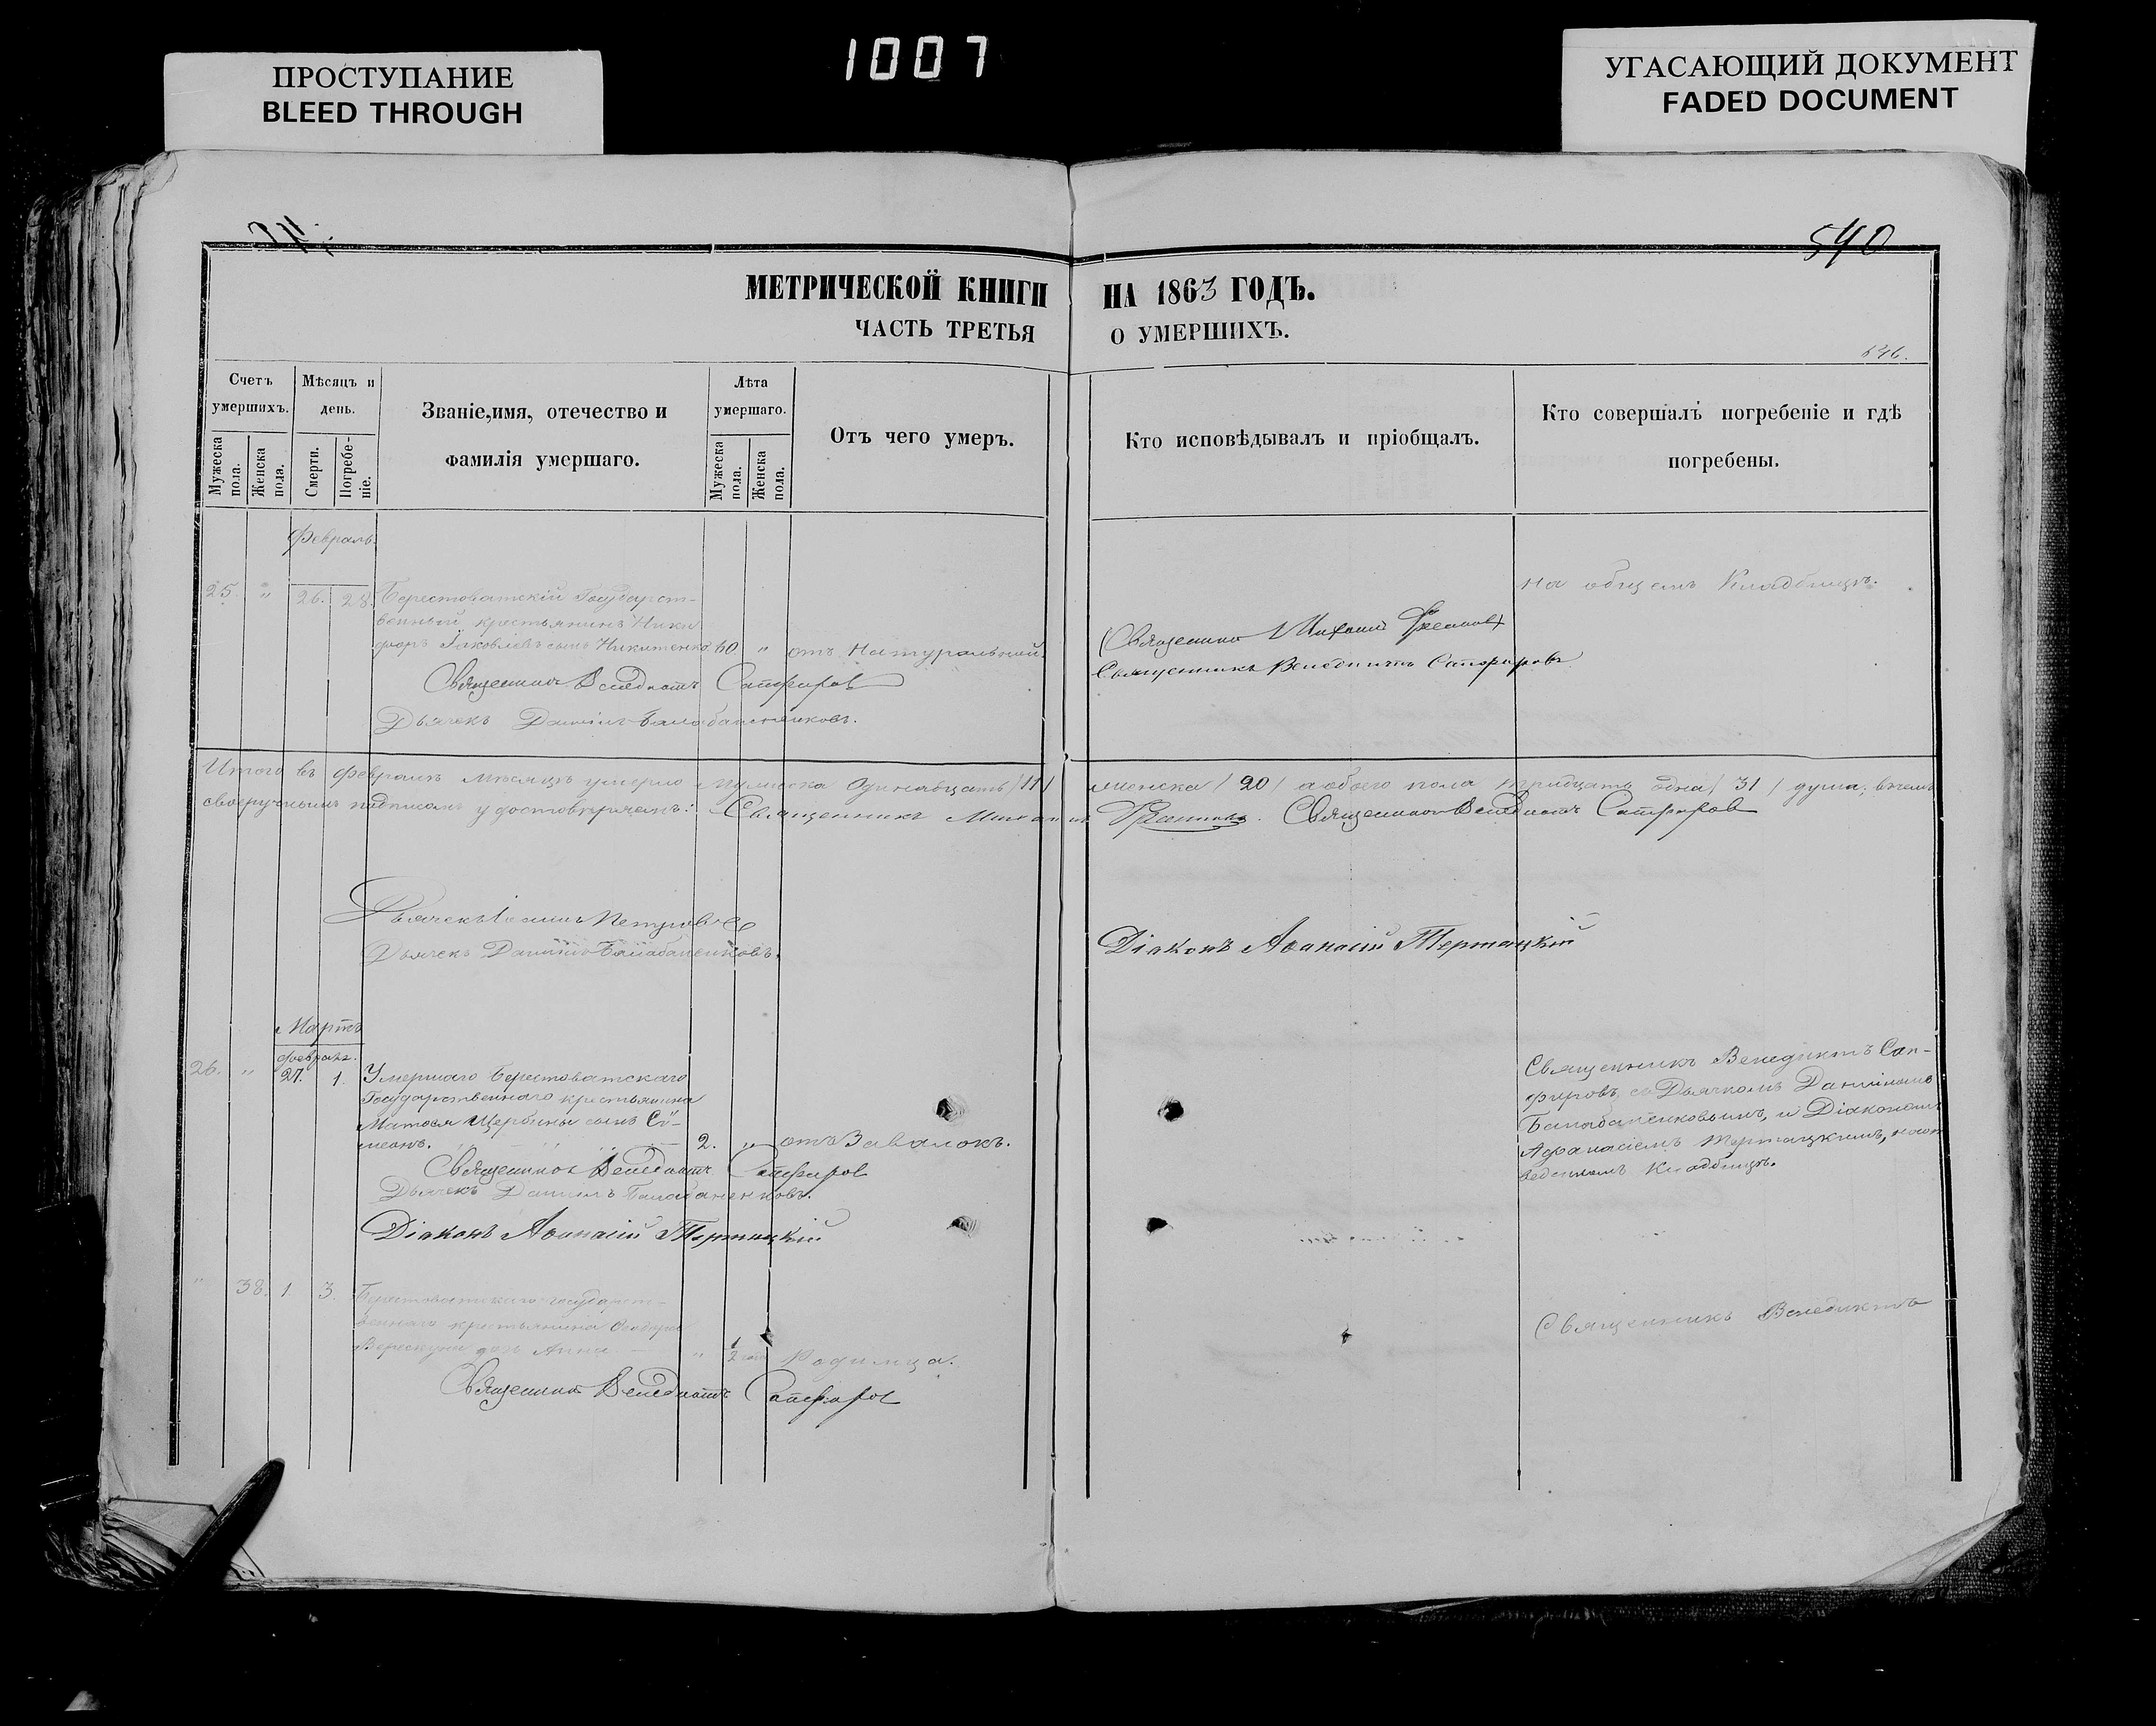 1007
ПРОСТУПАНИЕ
BLEED THROUGH
УГАСАЮЩИЙ ДОКУМЕНТ
FADED DOCUMENT
540
МЕТРИЧЕСКОЙ КНИГИ НА 1863 ГОДЪ.
ЧАСТЬ ТРЕТЬЯ О УМЕРШИХЪ.
646.
Счетъ умершихъ.
Мужеска пола.
Женска пола.
Мѣсяцъ и день.
Смерти.
Погребе-
ніе.
Званіе,имя, отечество и
фамилія умершаго.
Лѣта умершаго.
Мужеска пола.
Женска пола.
Отъ чего умеръ.
Кто исповѣдывалъ и пріобщалъ.
Кто совершалъ погребеніе и гдѣ
погребены.
Февраль.
25. " 26. 28. Берестоватскій Государст-
венный крестьянинъ Ники
форъ Іаковлевъ сынъ Никитенко. 60. " отъ Натуральной.
Священникъ Венедиктъ Сапфировъ
Дьячекъ Даніилъ Балабаненковъ.
Священникъ Михаилъ
Священникъ Венедиктъ Сапфировъ
на общемъ Кладбищѣ.
Итого въ Февралѣ мѣсяцѣ умерло мужеска Одинадцать /11/ женска /20/ а обоего пола тридцать одна /31/ душа; въ чемъ
своеручнымъ подписомъ удостовѣряемъ: Священникъ Михаилъ Священникъ Венедиктъ Сапфировъ
Дьячекъ Іоаннъ Петровъ
Дьячекъ Даніилъ Балабаненковъ.
Діаконъ Аѳанасій Термацкій
Мартъ
февраля.
26. " 27. 1. Умершаго Берестоватскаго
Государственнаго крестьянина
Матѳея Щербины сынъ Сѵ-
меонъ. 2. " отъ Завалокъ.
Священникъ Венедиктъ Сапфировъ
Дьячекъ Даніилъ Балабаненковъ.
Діаконъ Аѳанасій Термацкій
Священникъ Венедиктъ Сап-
фировъ, съ Дьячкомъ Даніиломъ
Балабаненковымъ, и Діакономъ
Афанасіемъ Термацкимъ, на от
веденномъ Кладбищѣ.
" 38. 1. 3. Берестоватскаго государст-
веннаго крестьянина Ѳеодора
дочь Анна " 1/2 года Родимца.
Священникъ Венедиктъ Сапфировъ
Священникъ Венедиктъ